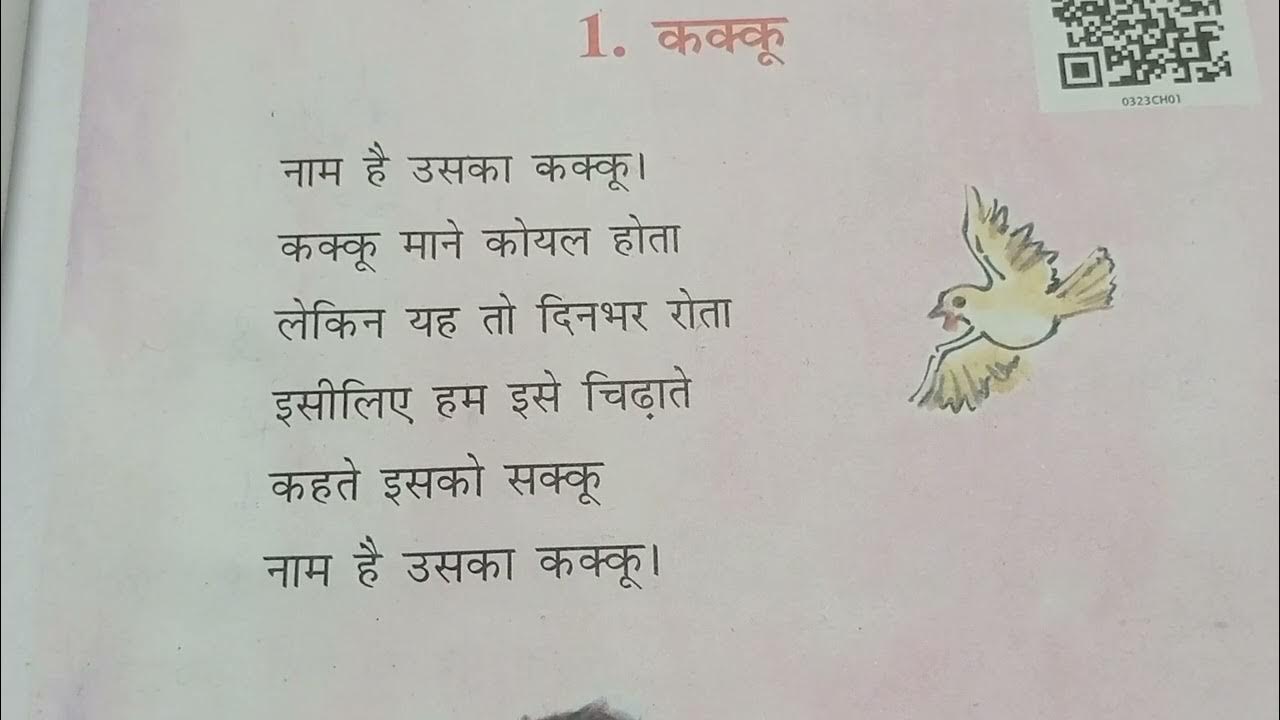 1. कक्कू
0323CH01
नाम है उसका कक्कू।
कक्कू माने कोयल होता
लेकिन यह तो दिनभर रोता
इसीलिए हम इसे चिढ़ाते
कहते इसको सक्कू
नाम है उसका कक्कू।